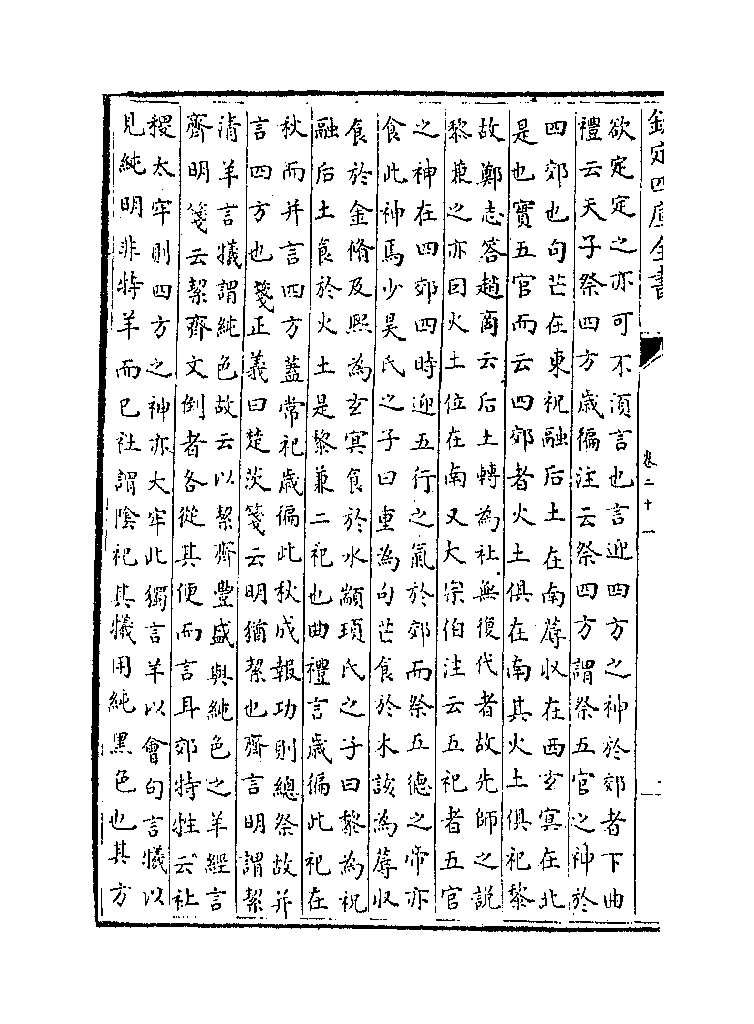 欽定四庫全書
卷二十一
欲定定之亦可不須言也言迎四方之神於郊者下曲
禮云天子祭四方歲徧注云祭四方謂祭五官之神於
四郊也句芒在東祝融后土在南蓐収在西𤣥㝠在北
是也實五官而云四郊者火土俱在南其火土俱祀黎
故鄭志答趙商云后土轉為社無復代者故先師之説
黎兼之亦因火土位在南又大宗伯注云五祀者五官
之神在四郊四時迎五行之氣於郊而祭五德之帝亦
食此神焉少昊氏之子曰重為句芒食於木該為蓐収
食於金脩及熙為𤣥㝠食於水顓頊氏之子曰黎為祝
融后土食於火土是黎兼二祀也曲禮言歲徧此祀在
秋而并言四方蓋常祀歲徧此秋成報功則總祭故并
言四方也箋正義曰楚茨箋云明猶絜也齊言明謂絜
清羊言犧謂純色故云以絜齊豐盛與純色之羊經言
齊明箋云絜齊文倒者各從其便而言耳郊特牲云社
稷太牢則四方之神亦大牢此獨言羊以會句言犧以
見純明非特羊而已社謂陰祀其犧用純黑色也其方